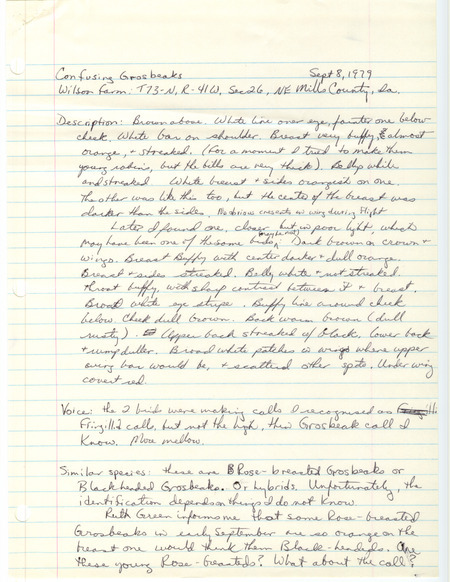 Confusing Grosbeaks Sept 8, 1979
Wilson Farm: T73-N, R-41W, Sec 26, NE Mills County, Ia.
Description: Brown above. White line over eye, fainter one below
cheek. White bar on shoulder. Breast very buffy, almost
orange, + streaked. (For a moment I tried to make them
young robins, but the bills are very thick). Belly white
and streaked White breast + sides orangish on one.
The other was like this too, but the center of the breast was
darker than the sides. No obvious crescents in wing during flight
Later I found one, closer, but in poor light, which
may have been one of the same birds (maybe not). Dark brown on crown +
wings. Breast Buffy with center darker + dull orange.
Breast + sides streaked. Belly white + not streaked.
Throat buffy, with sharp contrast between it + breast.
Broad white eye stripe. Buffy line around cheek
below. Cheek dull brown. Back warm brown (dull
rusty). Upper back streaked w/ black, lower back
+ rump duller. Broad white patches in wings where upper
wing bar would be, + scattered other spots. Under wing
covert red.
Voice: the 2 birds were making calls I recognised as
Fringillid calls, but not the high, thin Grosbeak call I
know. More mellow.
Similar species: these are Rose-breasted Grosbeaks or
Blackheaded Grosbeaks. Or hybrids. Unfortunately, the
identification depends on things I do not know
Ruth Green informs me that some Rose-breasted
Grosbeaks in early September are so orange on the
breast one would think them Black-headeds. Are
these young Rose-breasteds? What about the call?